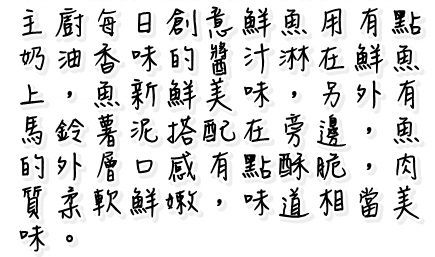 主廚每日創意鮮魚用有點
奶油香味的醬汁淋在鮮魚
上，魚新鮮美味，另外有
馬鈴薯泥搭配在旁邊，魚
的外層口感有點酥脆，肉
質柔軟鮮嫩，味道相當美
味。